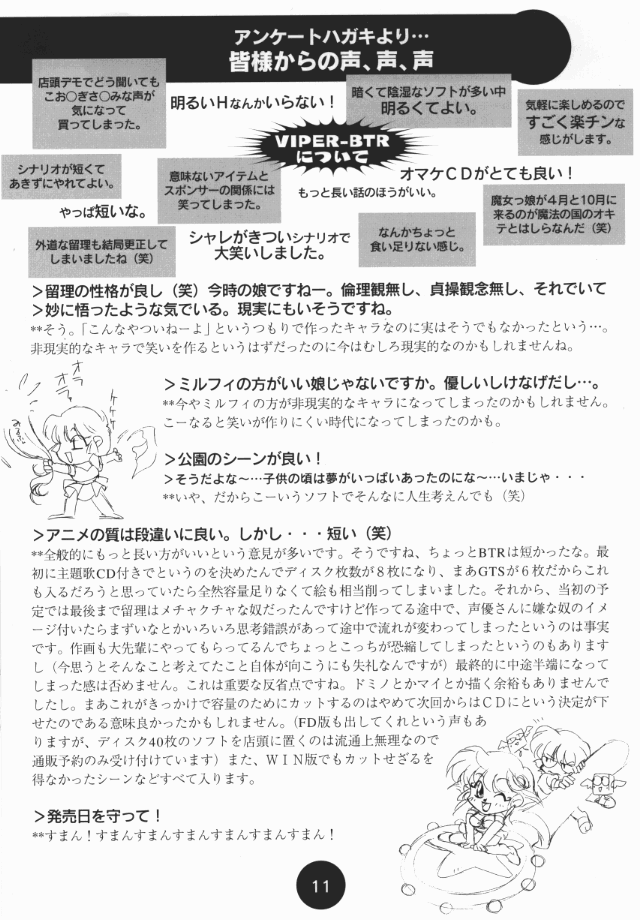 アンケートハガキより…
皆様からの声、声、声
店頭デモでどう聞いても
こお○ぎさ○みな声が
気になって
買ってしまった。
明るいHなんかいらない！
暗くて陰湿なソフトが多い中
明るくてよい。
気軽に楽しめるので
すごく楽チンな
感じがします。
VIPER-BTR
について
シナリオが短くて
あきずにやれてよい。
意味ないアイテムと
スポンサーの関係には
笑ってしまった。
オマケCDがとても良い！
もっと長い話のほうがいい。
やっぱ短いな。
魔女っ娘が４月と10月に
来るのが魔法の国のオキ
テとはしらなんだ（笑）
外道な留理も結局更正して
しまいましたね（笑）
シャレがきついシナリオで
大笑いしました。
なんかちょっと
食い足りない感じ。
＞留理の性格が良し（笑）今時の娘ですねー。倫理観無し、貞操観念無し、それでいて
＞妙に悟ったような気でいる。現実にもいそうですね。
**そう。「こんなやついねーよ」というつもりで作ったキャラなのに実はそうでもなかったという…。
非現実的なキャラで笑いを作るというはずだったのに今はむしろ現実的なのかもしれませんね。
オラ
オラ
＞ミルフィの方がいい娘じゃないですか。優しいしけなげだし…。
**今やミルフィの方が非現実的なキャラになってしまったのかもしれません。
こーなると笑いが作りにくい時代になってしまったのかも。
＞公園のシーンが良い！
＞そうだよな～…子供の頃は夢がいっぱいあったのにな～…いまじゃ・・・
**いや、だからこーいうソフトでそんなに人生考えんでも（笑）
＞アニメの質は段違いに良い。しかし・・・短い（笑）
**全般的にもっと長い方がいいという意見が多いです。そうですね、ちょっとBTRは短かったな。最
初に主題歌CD付きでというのを決めたんでディスク枚数が８枚になり、まあGTSが６枚だからこれ
も入るだろうと思っていたら全然容量足りなくて絵も相当削ってしまいました。それから、当初の予
定では最後まで留理はメチャクチャな奴だったんですけど作ってる途中で、声優さんに嫌な奴のイメ
ージ付いたらまずいなとかいろいろ思考錯誤があって途中で流れが変わってしまったというのは事実
です。作画も大先輩にやってもらってるんでちょっとこっちが恐縮してしまったというのもあります
し（今思うとそんなこと考えてたこと自体が向こうにも失礼なんですが）最終的に中途半端になって
しまった感は否めません。これは重要な反省点ですね。ドミノとかマイとか描く余裕もありませんで
したし。まあこれがきっかけで容量のためにカットするのはやめて次回からはＣＤにという決定が下
せたのである意味良かったかもしれません。（FD版も出してくれという声もあ
りますが、ディスク40枚のソフトを店頭に置くのは流通上無理なので
通販予約のみ受け付けています）また、ＷＩＮ版でもカットせざるを
得なかったシーンなどすべて入ります。
＞発売日を守って！
**すまん！すまんすまんすまんすまんすまんすまん！
11